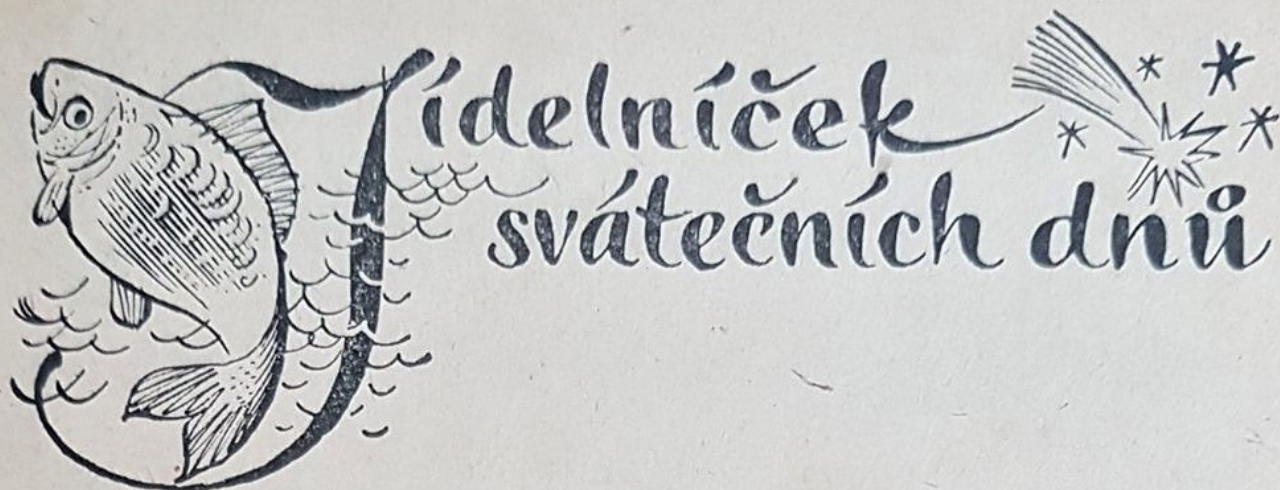 Jídelníček
svátečních dnů